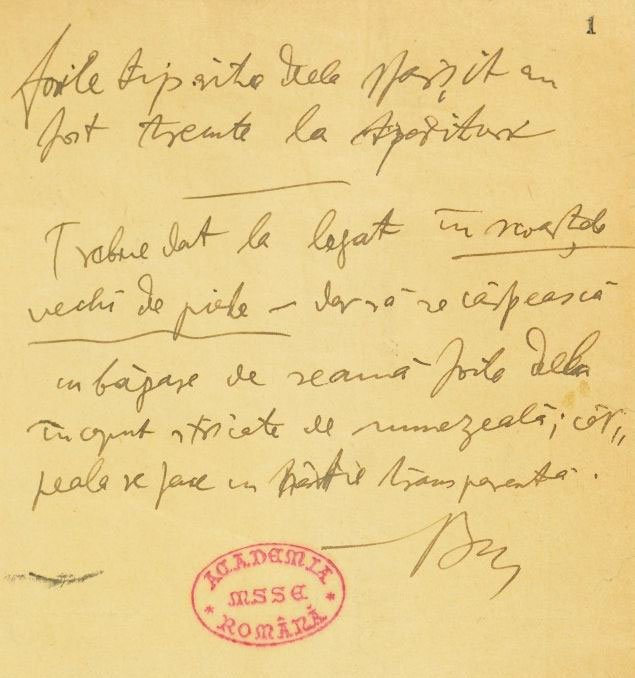 1
foile tipărite dela sfârșit au
fost trecute la tipărituri
Trebue dat la legat în scoarțele
vechi de piele – dar să se cârpească
cu băgare de seamă foile dela
început stricate de umezeală; câr„
peala se face cu hârtie transparentă.
ACADEMIA
MSSE
ROMÂNĂ